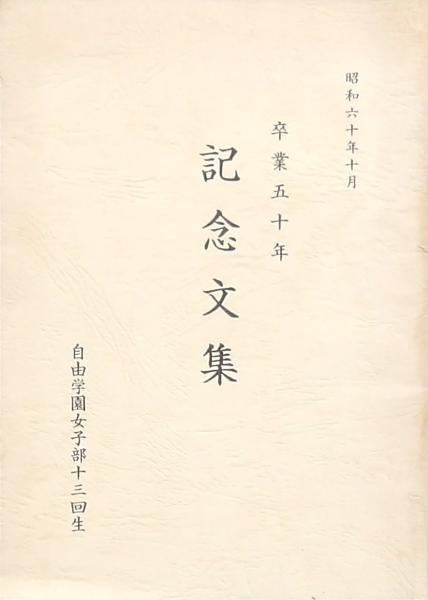 昭和六十年十月
卒業五十年
記念文集
自由学園女子部十三回生